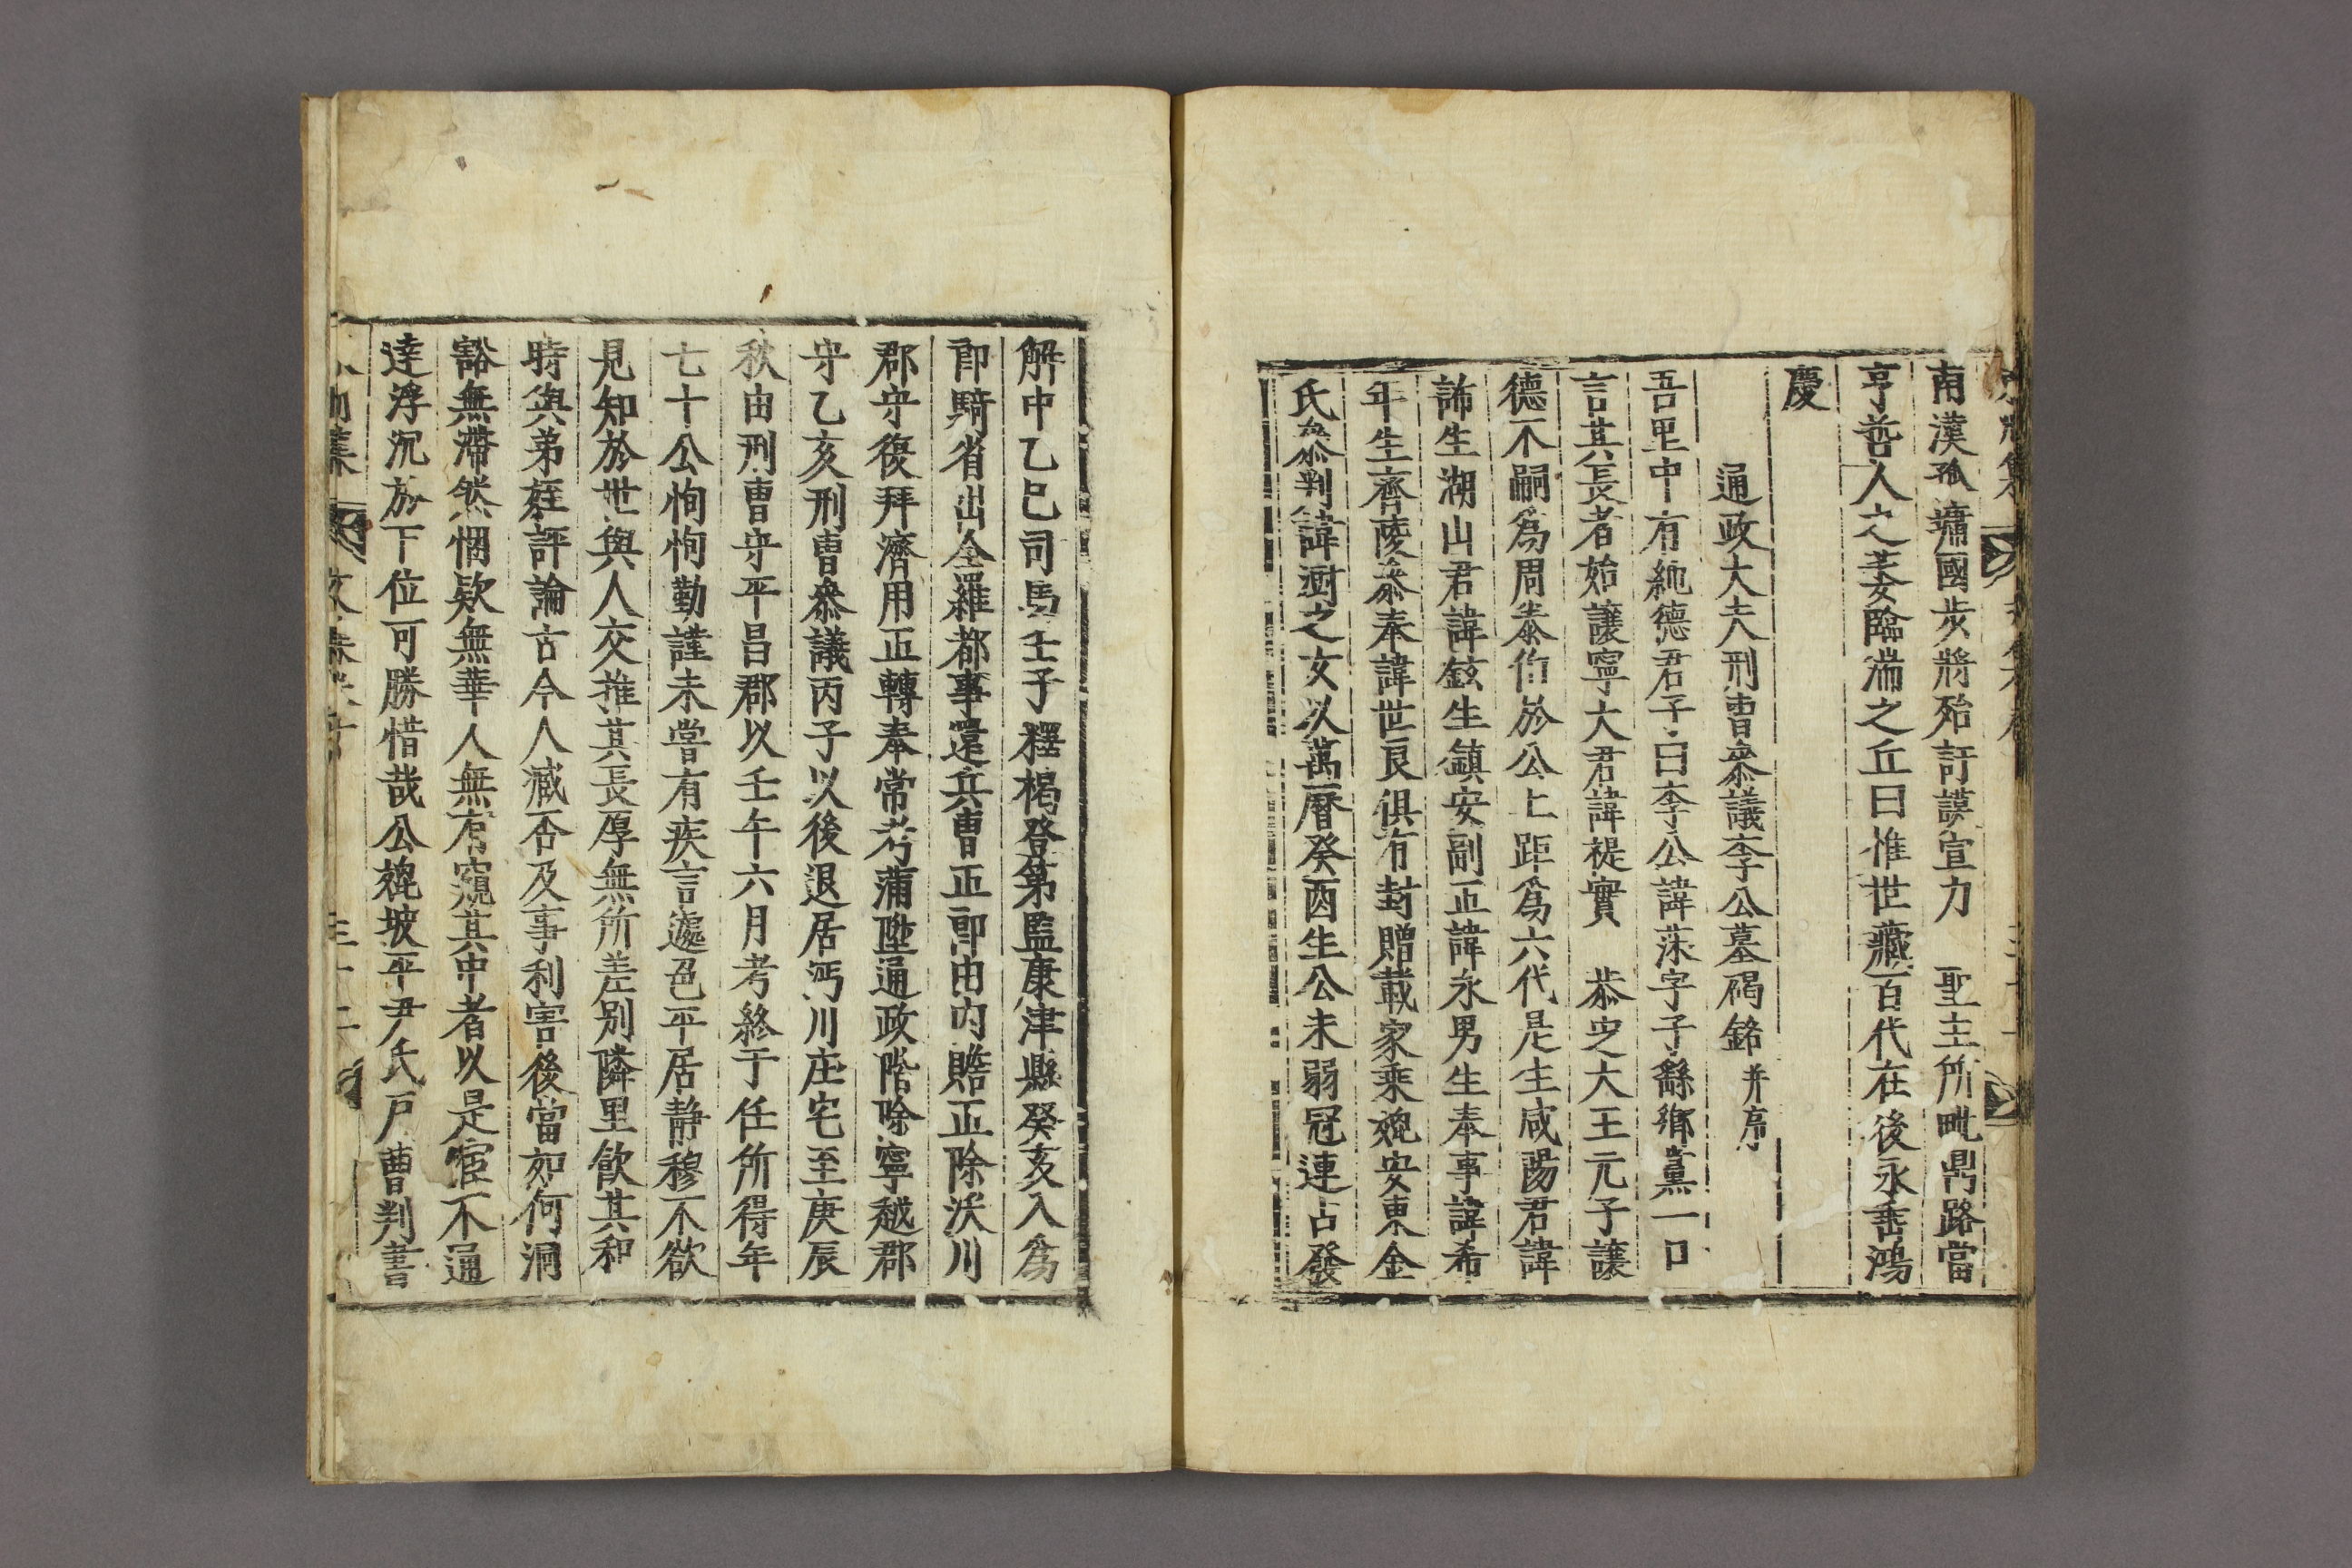 南漢孤墉國步將殆訏謨宣力　聖主所毗鼎路當
亨哲人之萎臨湍之丘曰惟世藏百代在後永垂鴻
慶
通政大夫刑曹叅議李公墓碣銘并序
吾里中有純德君子曰李公諱莯字子繇鄕黨一口
言其長者始讓寧大君諱禔實　恭定大王元子讓
德不嗣爲周泰伯於公上距爲六代是生咸陽君諱
㒇生湖山君諱鉉生鎭安副正諱永男生奉事諱希
年生齊陵叅奉諱世良俱有封贈載家乘娩安東金
氏叅判諱澍之女以萬曆癸酉生公未弱冠連占發
解中乙巳司馬壬子釋褐登第監康津縣癸亥入爲
郎騎省出全羅都事還兵曹正郎由內贍正除沃川
郡守復拜濟用正轉奉常考滿陞通政階除寧越郡
守乙亥刑曹叅議丙子以後退居沔川庄宅至庚辰
秋由刑曹守平昌郡以壬午六月考終于任所得年
七十公恂恂勤謹未嘗有疾言遽色平居靜穆不欲
見知於世與人交推其長厚無所差別隣里飮其和
時與弟姪評論古今人臧否及事利害後當如何洞
豁無滯然悃款無華人無有窺其中者以是宦不通
達浮沉於下位可勝惜哉公娩坡平尹氏戶曹判書